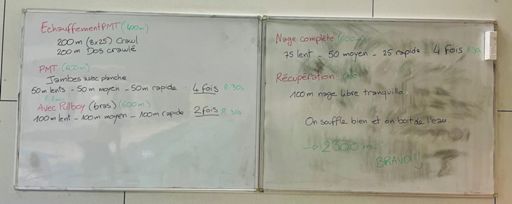 Echauffement PMT (400m)
200m (8x25) Crawl
200m Dos crawlé
PMT (600m)
Jambes avec planche
50m lents - 50m moyen - 50m rapide - 4 fois R 30s
Avec Pullboy (bras) (600m)
100m lent - 100m moyen - 100m rapide 2 fois R 30s
Nage complète (600m)
75 lent - 50 moyen - 25 rapide 4 fois R 30s
Récupération
100m nage libre tranquille
On souffle bien et on boit de l'eau
2300m
BRAVO!!